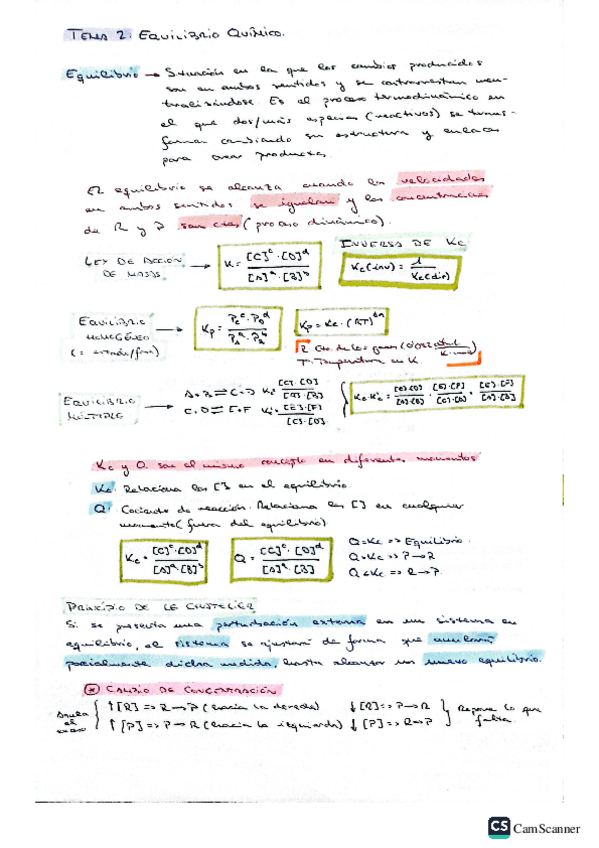 TEMA 2: EQUILIBRIO QUÍMICO.
Equilibrio → Situación en la que los cambios producidos
son en ambos sentidos y se contrarrestan neu-
tralizándose. Es el proceso termodinámico en
el que dos/más especies (reactivos) se trans-
forman cambiando su estructura y enlaces
para crear productos.
El equilibrio se alcanza cuando las velocidades
en ambos sentidos se igualan y las concentraciones
de R y P son ctes (proceso dinámico).
INVERSO DE Kc
LEY DE ACCIÓN DE MASAS → K = [C]^c · [D]^d / [A]^a · [B]^b
Kc(inv) = 1 / Kc(dir)
EQUILIBRIO HOMOGÉNEO (= estado/fase) → Kp = Pc^c · PD^d / PA^a · PB^b
Kp = Kc · (RT)^Δn
R: Cte. de los gases (0,082 atm·l / K·mol)
T: Temperatura en K
EQUILIBRIO MÚLTIPLE → A + B ⇌ C + D Kc = [C]·[D] / [A]·[B]
C + D ⇌ E + F Kc' = [E]·[F] / [C]·[D]
Kc·Kc' = [C]·[D] / [A]·[B] · [E]·[F] / [C]·[D] = [E]·[F] / [A]·[B]
Kc y Q son el mismo concepto en diferentes momentos
Kc: Relaciona las [ ] en el equilibrio.
Q: Cociente de reacción. Relaciona las [ ] en cualquier
momento (fuera del equilibrio).
Kc = [C]^c · [D]^d / [A]^a · [B]^b
Q = [C]^c · [D]^d / [A]^a · [B]
Q = Kc => Equilibrio.
Q > Kc => P → R
Q < Kc => R → P.
PRINCIPIO DE LE CHATELIER
Si se presenta una perturbación externa en un sistema en
equilibrio, el sistema se ajustará de forma que
parcialmente dicha medida, hasta alcanzar un nuevo equilibrio.
* CAMBIO DE CONCENTRACIÓN
el ↑[R] => R → P (hacia la derecha) ↓[R] => P → R
↑[P] => P → R (hacia la izquierda) ↓[P] => R → P
Repone lo que falta.
CS CamScanner